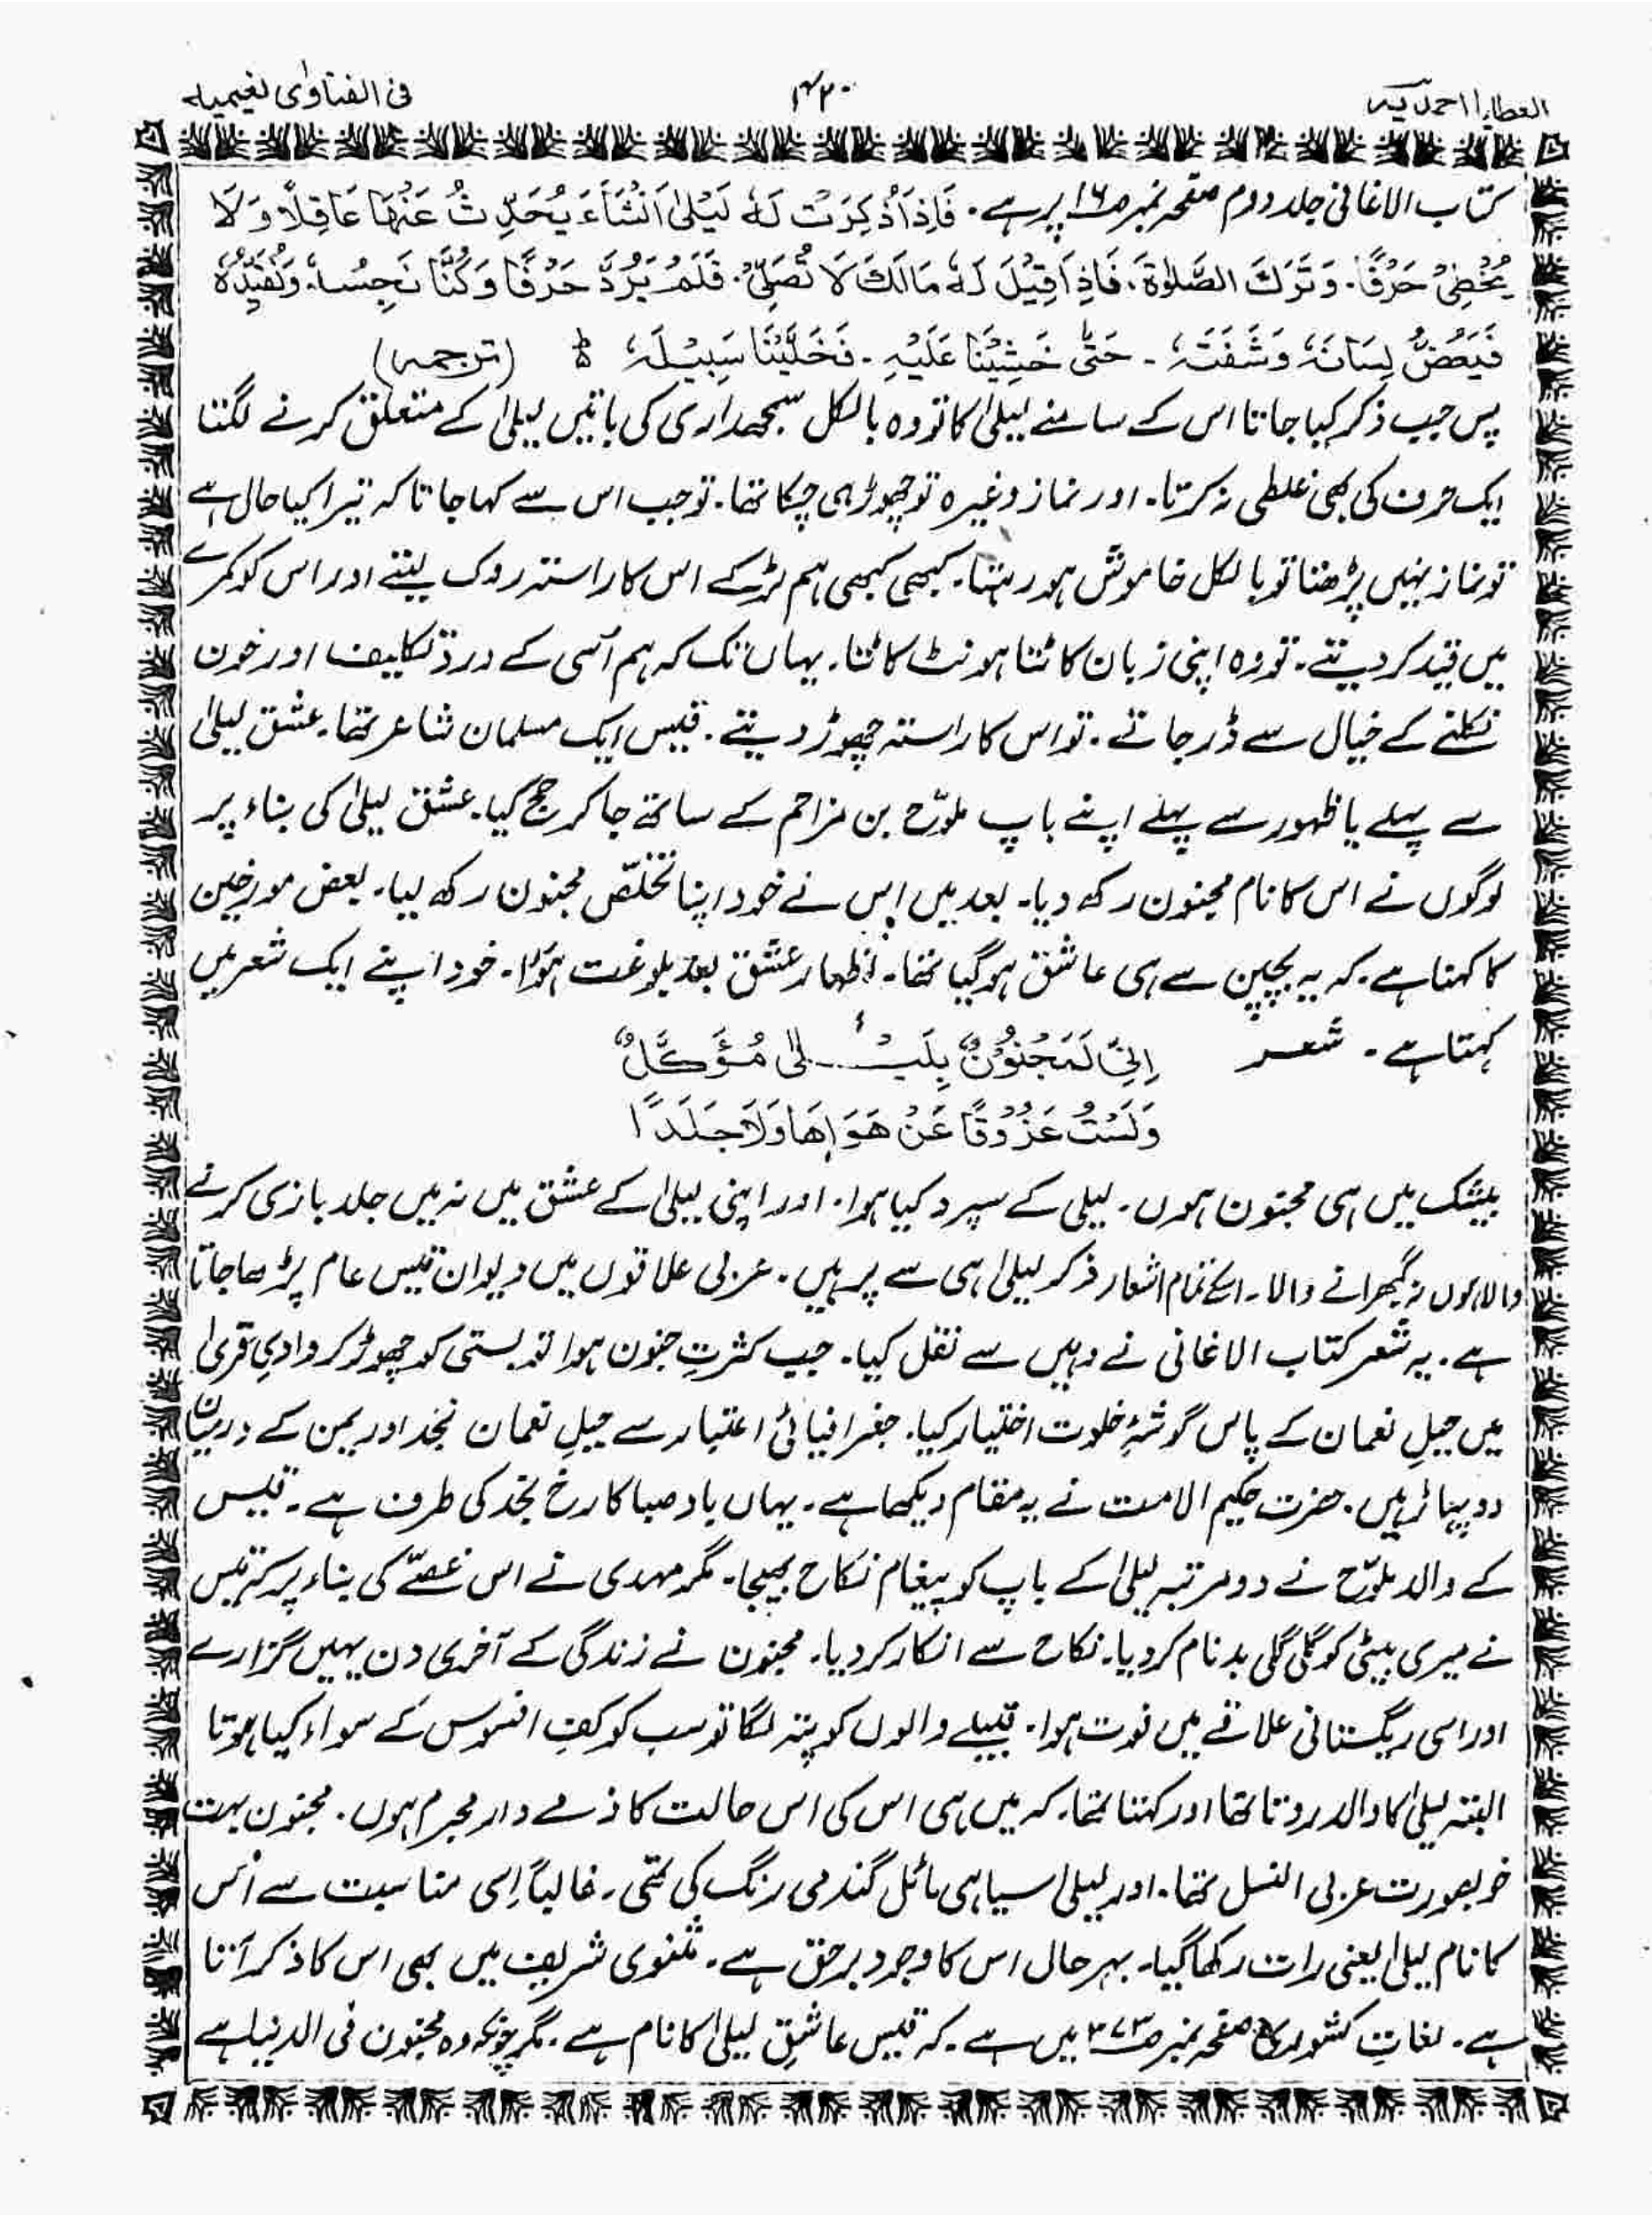 العطایا احمدیہ ۴۲۰ فی الفتاوٰی نعیمیہ
کتاب الاغانی جلد دوم صفحہ نمبر ۱۶ پر ہے۔ فَاِذَا ذُکِرَتْ لَہٗ لَیْلٰی اَنْشَأَ یُحَدِّثُ عَنْہَا عَاقِلًا وَلَا
یُخْطِیُٔ حَرْفًا۔ وَتَرَکَ الصَّلٰوۃَ۔ فَاِذَا قِیْلَ لَہٗ مَالَکَ لَا تُصَلِّیْ۔ فَلَمْ یَرُدَّ حَرْفًا وَکُنَّا نَحْبِسُہٗ۔ وَنُقَیِّدُہٗ
فَیَعَضُّ لِسَانَہٗ وَشَفَتَہٗ۔ حَتّٰی خَشِیْنَا عَلَیْہِ۔ فَخَلَّیْنَا سَبِیْلَہٗ ط (ترجمہ)
پس جب ذکر کیا جاتا اس کے سامنے لیلیٰ کا تو وہ بالکل سمجھداری کی باتیں لیلیٰ کے متعلق کرنے لگتا
ایک حرف کی بھی غلطی نہ کرتا۔ اور نماز وغیرہ تو چھوڑ ہی چکا تھا۔ تو جب اس سے کہا جاتا کہ تیرا کیا حال ہے
تو نماز نہیں پڑھتا تو بالکل خاموش ہو رہتا۔ کبھی کبھی ہم لڑکے اس کا راستہ روک لیتے اور اس کو کمرے
میں قید کر دیتے۔ تو وہ اپنی زبان کاٹتا ہونٹ کاٹتا۔ یہاں تک کہ ہم اسی کے درد تکلیف اور خون
نکلنے کے خیال سے ڈر جاتے۔ تو اس کا راستہ چھوڑ دیتے۔ قیس ایک مسلمان شاعر تھا۔ عشق لیلیٰ
سے پہلے یا ظہور سے پہلے اپنے باپ ملوّح بن مزاحم کے ساتھ جا کر حج کیا۔ عشق لیلیٰ کی بناء پر
لوگوں نے اس کا نام مجنون رکھ دیا۔ بعد میں اس نے خود اپنا تخلّص مجنون رکھ لیا۔ بعض مورخین
کا کہنا ہے۔ کہ یہ بچپن سے ہی عاشق ہو گیا تھا۔ اظہار عشق بعد بلوغت ہؤا۔ خود اپنے ایک شعر میں
کہتا ہے۔ شعر اِنِّیْ لَمَجْنُوْنٌ بِلَیْلٰی مُؤَکَّلٌ
وَلَسْتُ عَزُوْفًا عَنْ ھَوَاھَا وَلَا جَلَدًا
بیشک میں ہی مجنون ہوں۔ لیلی کے سپرد کیا ہوا۔ اور اپنی لیلیٰ کے عشق میں نہ میں جلد بازی کرنے
والا ہوں نہ گھبرانے والا۔ اسکے تمام اشعار ذکر لیلیٰ ہی سے پر ہیں۔ عربی علاقوں میں دیوان قیس عام پڑھا جاتا
ہے۔ یہ شعر کتاب الاغانی نے وہیں سے نقل کیا۔ جب کثرتِ جنون ہوا تو بستی کو چھوڑ کر وادیِ قریٰ
میں جبلِ نعمان کے پاس گوشۂ خلوت اختیار کیا۔ جغرافیائی اعتبار سے جبلِ نعمان نجد اور یمن کے درمیان
دو پہاڑ ہیں۔ حضرت حکیم الامت نے یہ مقام دیکھا ہے۔ یہاں باد صبا کا رخ نجد کی طرف ہے۔ قیس
کے والد ملوّح نے دو مرتبہ لیلیٰ کے باپ کو پیغام نکاح بھیجا۔ مگر مہدی نے اس غصّے کی بناء پر کہ قیس
نے میری بیٹی کو گلی گلی بدنام کر دیا۔ نکاح سے انکار کر دیا۔ مجنون نے زندگی کے آخری دن یہیں گزارے
اور اسی ریگستانی علاقے میں فوت ہوا۔ قبیلے والوں کو پتہ لگا تو سب کو کفِ افسوس کے سواء کیا ہوتا
البتہ لیلیٰ کا والد روتا تھا اور کہتا تھا۔ کہ میں ہی اس کی اس حالت کا ذمے دار مجرم ہوں۔ مجنون بہت
خوبصورت عربی النسل تھا۔ اور لیلیٰ سیاہی مائل گندمی رنگ کی تھی۔ غالباً اِسی مناسبت سے اُس
کا نام لیلیٰ یعنی رات رکھا گیا۔ بہر حال اس کا وجود برحق ہے۔ مثنوی شریف میں بھی اس کا ذکر آتا
ہے۔ لغاتِ کشوری صفحہ نمبر ۳۷۳ میں ہے۔ کہ قیس عاشقِ لیلیٰ کا نام ہے۔ مگر چونکہ وہ مجنون فی الدنیا ہے